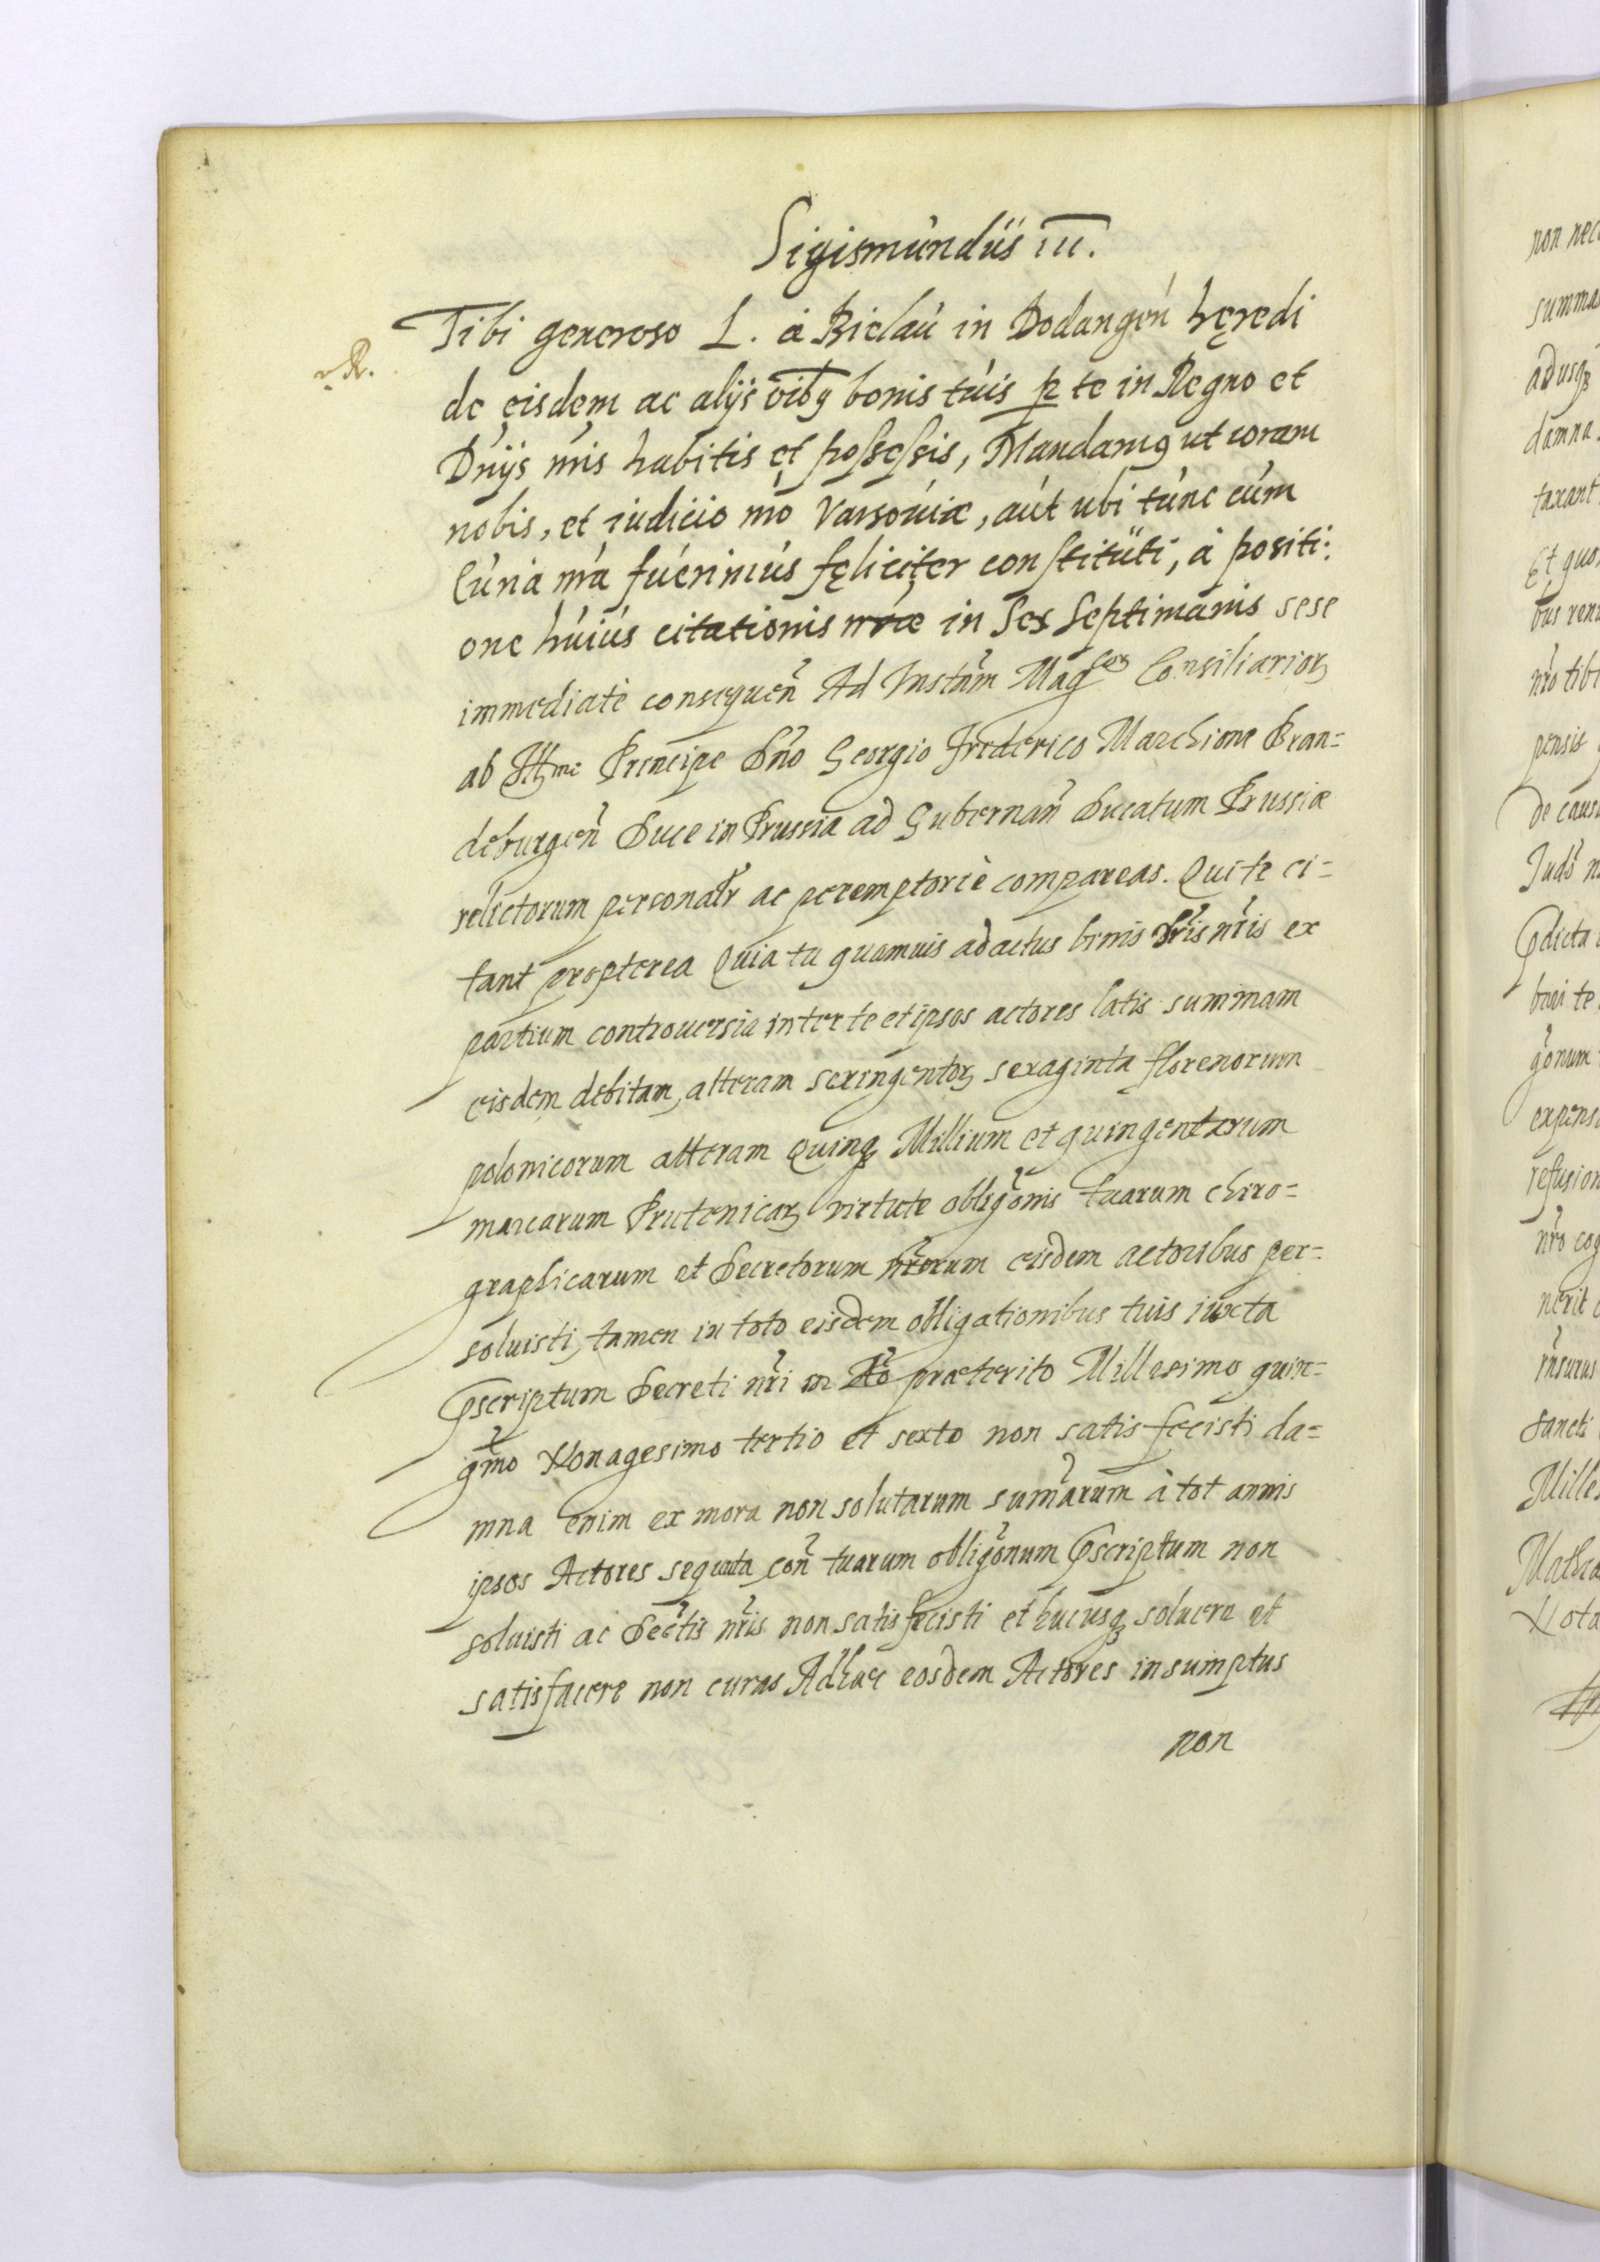 Sigismundus III.
Tibi generoso L. à Bielau in Dodangen hęredi
de eisdem ac alijs oibꝫ bonis tuis p te in Regno et
Dnijs nris habitis et possessis, Mandamꝫ ut coram
nobis, et iudicio nro Varsoviæ, aut ubi tunc cum
Curia nra fuerimus fęliciter constituti, à positi:
one huius citationis nræ in Sex Septimanis sese
immediatè consequen̄ Ad Instam Magcorꝫ Consiliariorꝫ
ab Illme Principe Dno Georgio Frederico Marchione Bran=
deburgen̄ Duce in Prussia ad Gubernan̄ Ducatum Prussiæ
relictorum personalr ac peremptoriè compareas. Qui te ci=
tant propterea Quia tu quamuis adactus binis Dtis nris ex
partium controuersia inter te et ipsos actores latis summam
eisdem debitam, alteram sexingentorꝫ sexaginta florenorum
polonicorum alteram Quinqꝫ Millium et quingentarum
marcarum Prutenicarꝫ virtute obligonis tuarum chiro=
graphicarum et Decretorum nrorum eisdem actoribus per=
soluisti, tamen in toto eisdem obligationibus tuis iuxta
Pscriptum Decreti nri in Ao praeterito Millesimo quin=
gmo Nonagesimo tertio et sexto non satisfecisti da=
mna enim ex mora non solutarum sumarum à tot annis
ipsos Actores sequuta, con̄ tuarum obligonum Pscriptum non
soluisti ac Dectis nris non satisfecisti et hucusqꝫ soluere et
satisfacere non curas Adhac eosdem Actores in sumptus
non